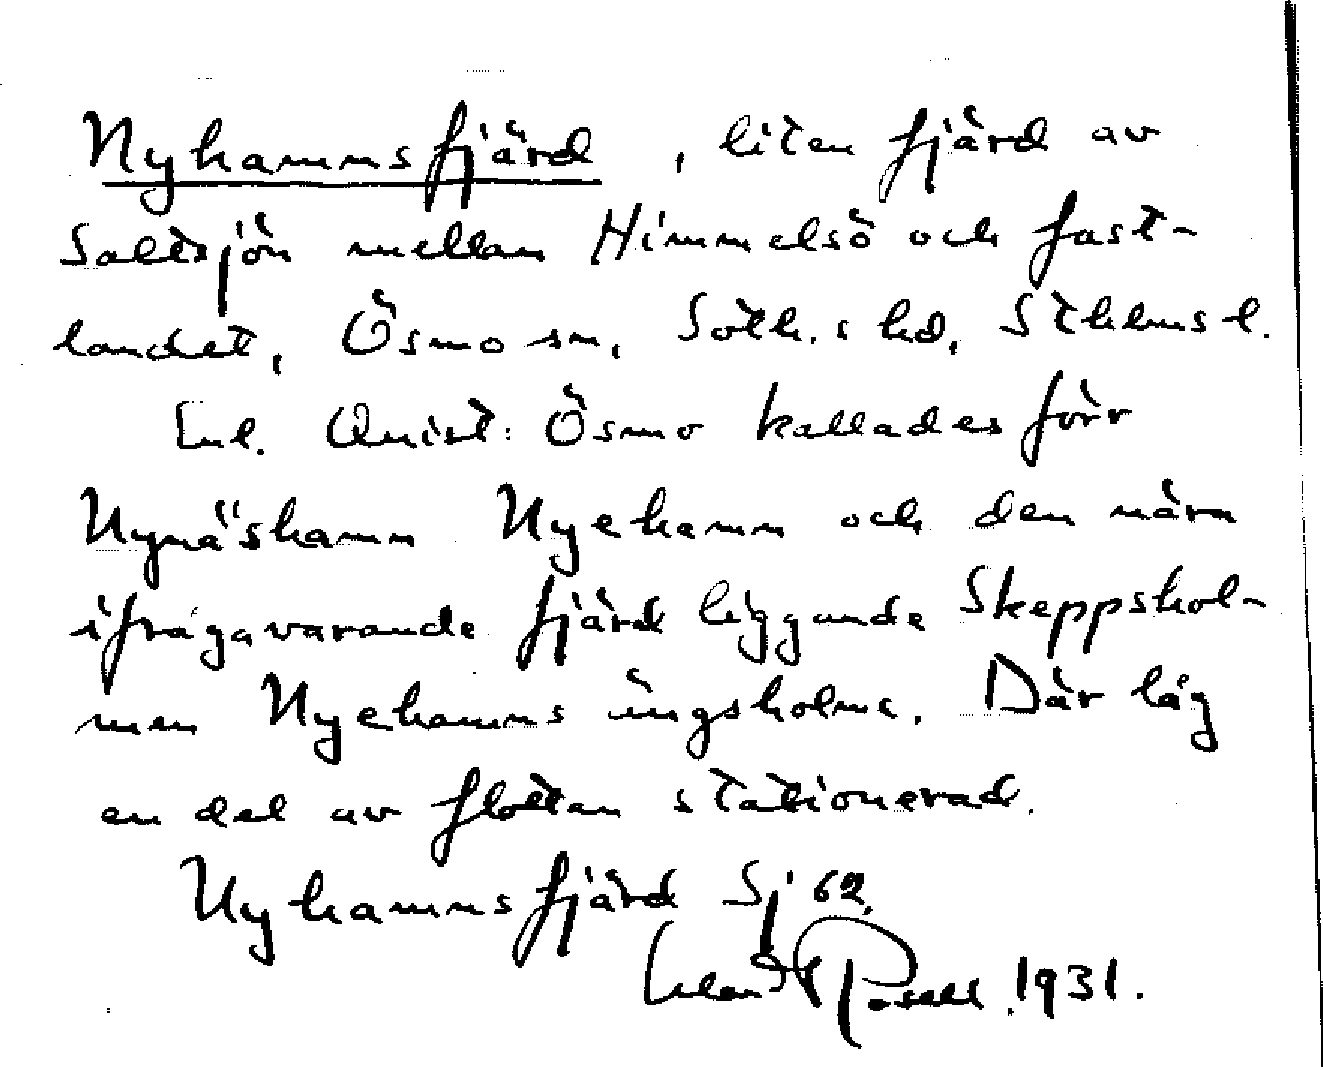 Nyhamnsfjärd, liten fjärd av
Saltsjön mellan Himmelsö och fast-
landet, Ösmo sn, Soth.s hd, Sthlms l.
Enl. Quist: Ösmo kallades förr
Nynäshamn Nyehamn och den nära
ifrågavarande fjärd liggande Skeppshol-
men Nyehamns ängsholme. Där låg
en del av flottan stationerad.
Nyhamnsfjärd Sj 62.
Rosell. 1931.